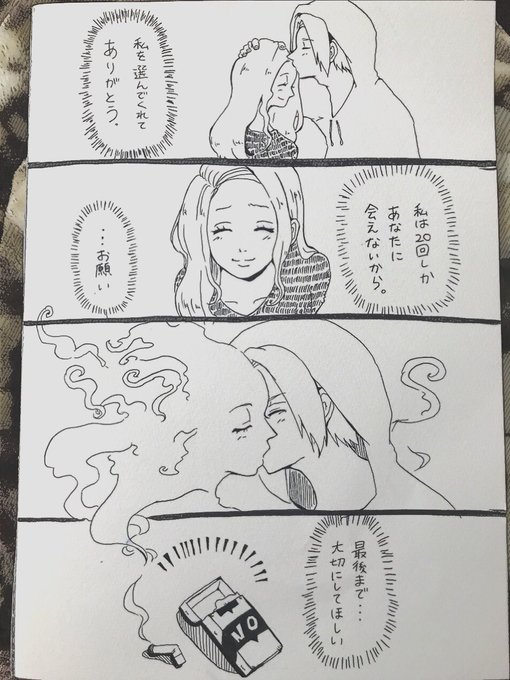 私を選んでくれて
ありがとう。
私は20回しか
あなたに
会えないから。
・・お願い…
最後まで・・・
大切にしてほしい